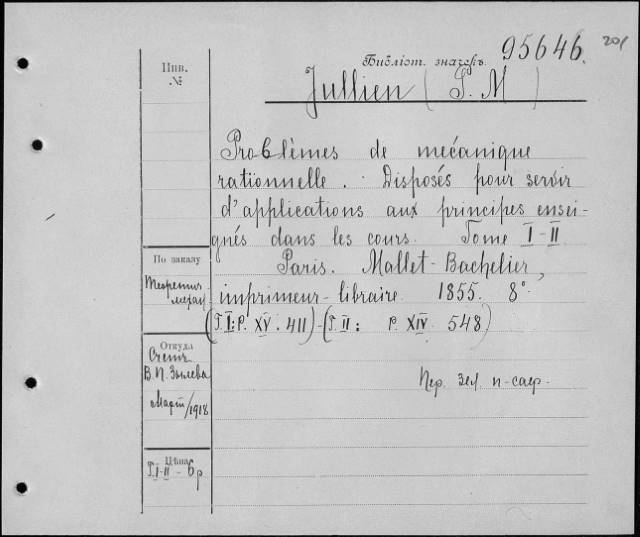 Библіот. значекъ 95646. 201
Инв.
№
Jullien (S. M)
Problèmes de mecánique
rationnelle. Disposés pour servir
d'applications aux principes ensei-
gnés dans les cours. Tome I-II
По заказу
Теоретич.
механ
Paris. Mallet-Bachelier,
imprimeur-libraire 1855. 8°.
(T. I: P. XV. 411)-(T. II: P. XIV 548)
Откуда
Счетъ
В.П. Зылева
Март/1918
Пер. зел
Цѣна
T. I-II - 6 р